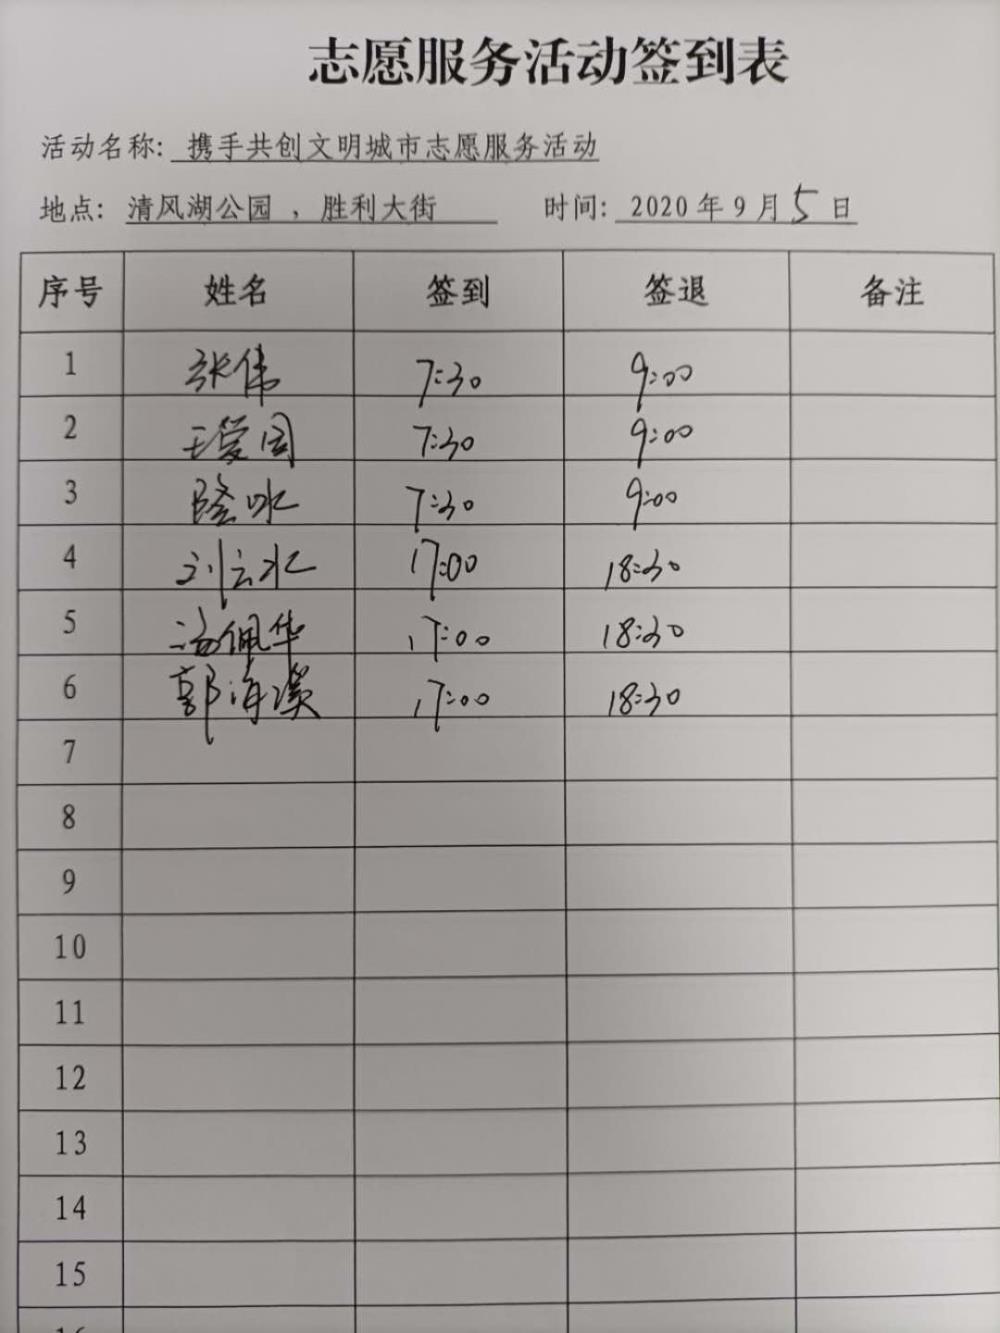 志愿服务活动签到表
活动名称: 携手共创文明城市志愿服务活动
地点: 清风湖公园 ，胜利大街 时间: 2020 年 9 月 5 日
序号 姓名 签到 签退 备注
1 张伟 7:30 9:00
2 王爱国 7:30 9:00
3 7:30 9:00
4 刘云水 17:00 18:30
5 佩华 17:00 18:30
6 郭海溪 17:00 18:30
7
8
9
10
11
12
13
14
15